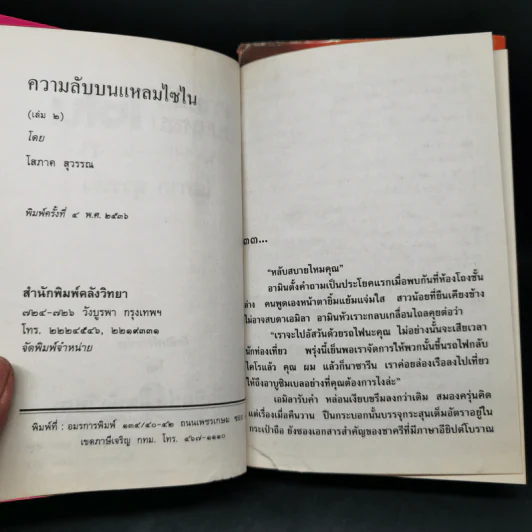 ความลับบนแหลมไซไน
(เล่ม ๒)
โดย
โสภาค สุวรรณ
พิมพ์ครั้งที่ ๔ พ.ศ. ๒๕๓๖
สำนักพิมพ์คลังวิทยา
๗๒๔-๗๒๖ วังบูรพา กรุงเทพฯ
โทร. ๒๒๒๔๕๔๖, ๒๒๑๙๓๓๑
จัดพิมพ์จำหน่าย
พิมพ์ที่ : อมรการพิมพ์ ๑๓๔/๔๐-๔๒ ถนนเพชรเกษม
เขตภาษีเจริญ กทม. โทร. ๔๖๗-๑๑๑๐
๓๓...
“หลับสบายไหมคุณ”
อามินตั้งคำถามเป็นประโยคแรกเมื่อพบกันที่ห้องโถงชั้น
ล่าง คนพูดเองหน้าตายิ้มแย้มแจ่มใส สาวน้อยที่ยืนเคียงข้าง
ไม่อาจสบตาเอมิลา อามินหัวเราะกลบเกลื่อนไถลคุยต่อว่า
“เราจะไปอัสวันด้วยรถไฟนะคุณ ไม่อย่างนั้นจะเสียเวลา
นักท่องเที่ยว พรุ่งนี้เย็นพอเราจัดการให้พวกนั้นขึ้นรถไฟกลับ
ไคโรแล้ว คุณ ผม แล้วก็นาซารีน เราค่อยล่องเรือลงไปเที่ยว
ให้ถึงอาบูซิมเบลอย่างที่คุณต้องการไงล่ะ”
เอมิลารับคำ หล่อนเงียบขรึมลงกว่าเดิม สมองครุ่นคิด
แต่เรื่องเมื่อคืนวาน ปืนกระบอกนั้นบรรจุกระสุนเต็มอัตราอยู่ใน
กระเป๋าถือ ยังซองเอกสารสำคัญของชาครีที่มีภาษาอียิปต์โบราณ